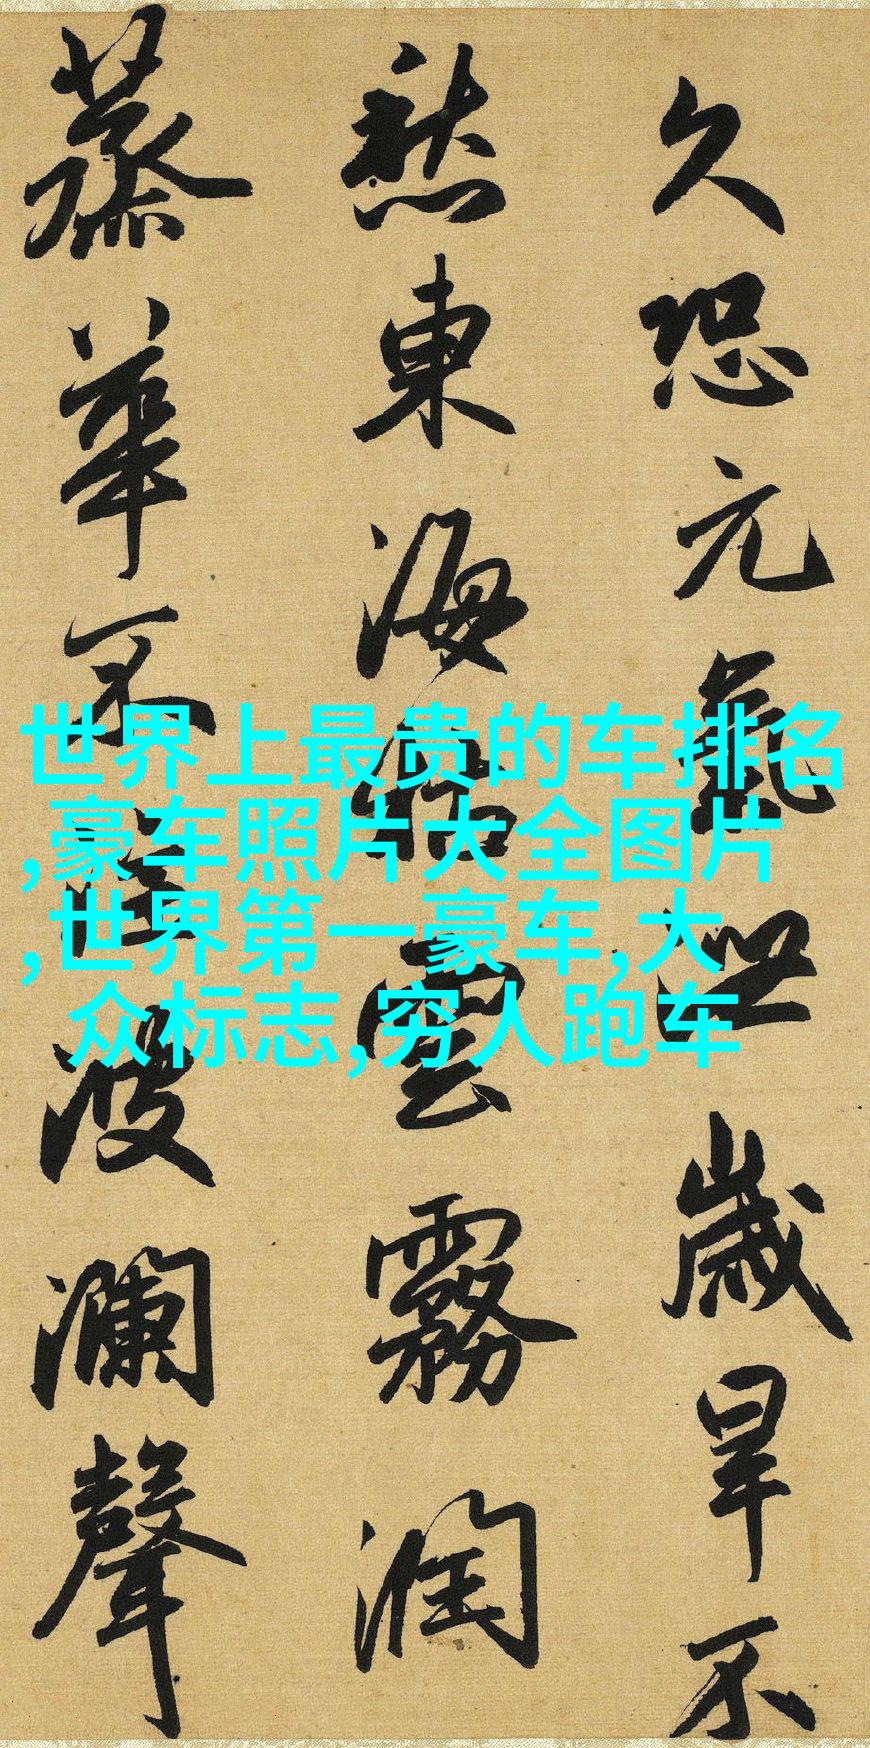 久恐元氣泄歲旱不
愁東海枯雲霧潤
蒸華不注波瀾聲
世界上最贵的车排名
,豪车照片大全图片
,世界第一豪车,大
众标志,穷人跑车